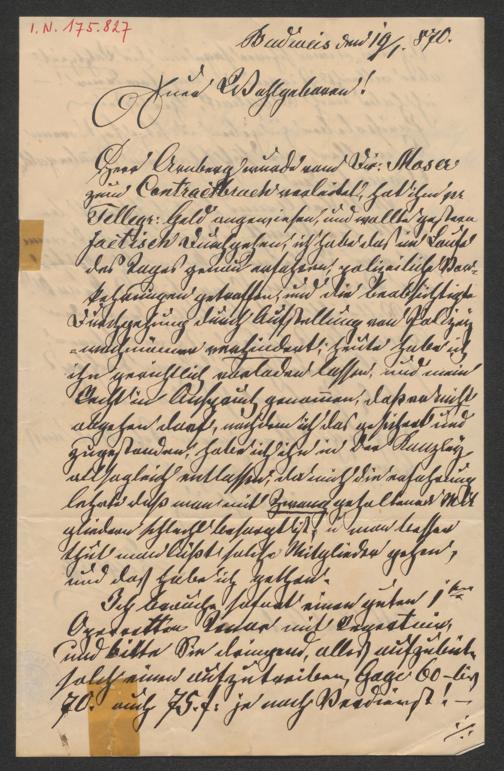 I. N. 175.827
Budweis den 19/1. 870.
Euer Wohlgeboren!
Herr Arnberg wurde vom Dir: Moser
zum Contractbruch verleitet, hat ihm pr
Telegr: Geld angewiesen, und wollte gestern
factisch durchgehen, ich habe das im Laufe
des Tages genau erfahren, polizeiliche Vor-
kehrungen getroffen, und die beabsichtigte
Durchgehung durch Aufstellung von Polizei
=wachmänner verhindert; heute habe ich
ihn gerichtlich vorladen lassen, und mein
Recht in Anspruch genommen, daß er nicht
abgehen darf, nachdem ich das gesichert und
zugestanden, habe ich ihn in der Kanzley
allsogleich entlassen, da mich die Erfahrung
lehrte daß man mit Zwang gehaltenen Mit
gliedern schlecht besorgt ist, u man besser
thut man läßt solche Mitglieder gehen,
und das habe ich gethan.
Ich brauche sofort einen guten 1ten
Operetten Tenor mit Repertoir,
und bitte Sie dringend, alles aufzubieten
solch einen aufzutreiben, Gage 60 – bis
70. auch 75. f: je nach Verdienst! –